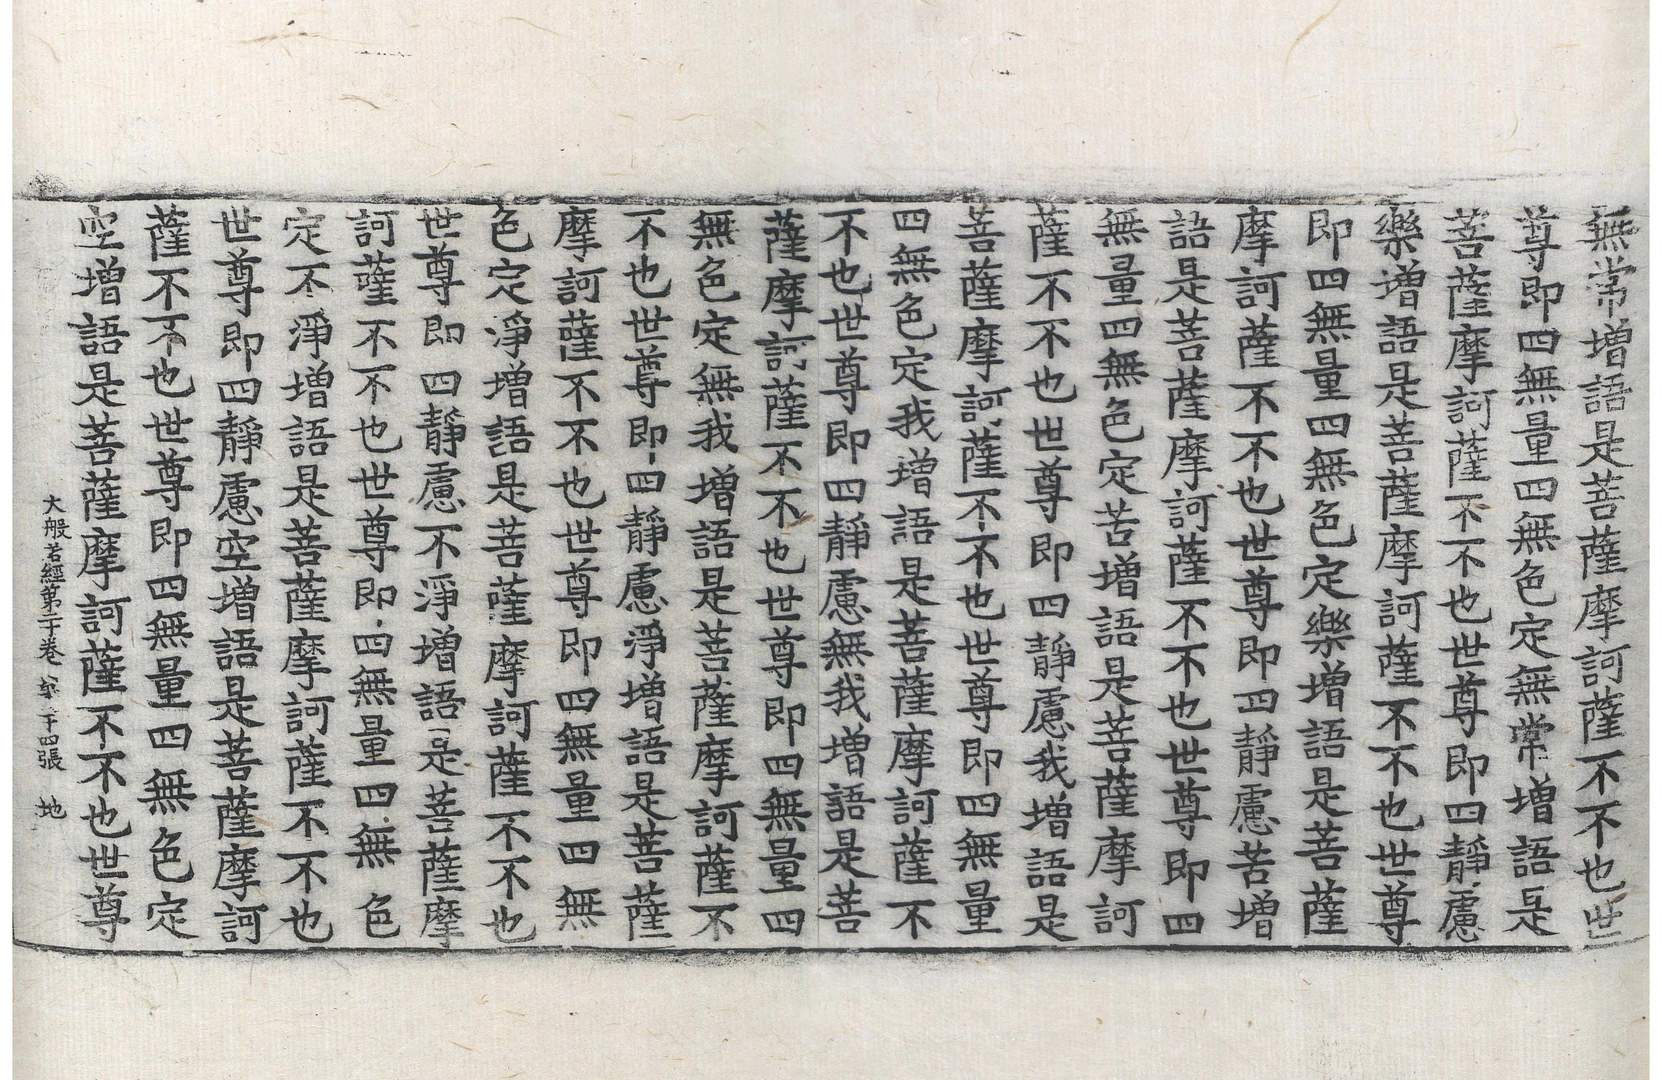 無常增語是菩薩摩訶薩不不也世
尊即四無量四無色定無常增語是
菩薩摩訶薩不不也世尊即四靜慮
樂增語是菩薩摩訶薩不不也世尊
即四無量四無色定樂增語是菩薩
摩訶薩不不也世尊即四靜慮苦增
語是菩薩摩訶薩不不也世尊即四
無量四無色定苦增語是菩薩摩訶
薩不不也世尊即四靜慮我增語是
菩薩摩訶薩不不也世尊即四無量
四無色定我增語是菩薩摩訶薩不
不也世尊即四靜慮無我增語是菩
薩摩訶薩不不也世尊即四無量四
無色定無我增語是菩薩摩訶薩不
不也世尊即四靜慮淨增語是菩薩
摩訶薩不不也世尊即四無量四無
色定淨增語是菩薩摩訶薩不不也
世尊即四靜慮不淨增語是菩薩摩
訶薩不不也世尊即四無量四無色
定不淨增語是菩薩摩訶薩不不也
世尊即四靜慮空增語是菩薩摩訶
薩不不也世尊即四無量四無色定
空增語是菩薩摩訶薩不不也世尊
大般若經第二十卷 第二十四張 地